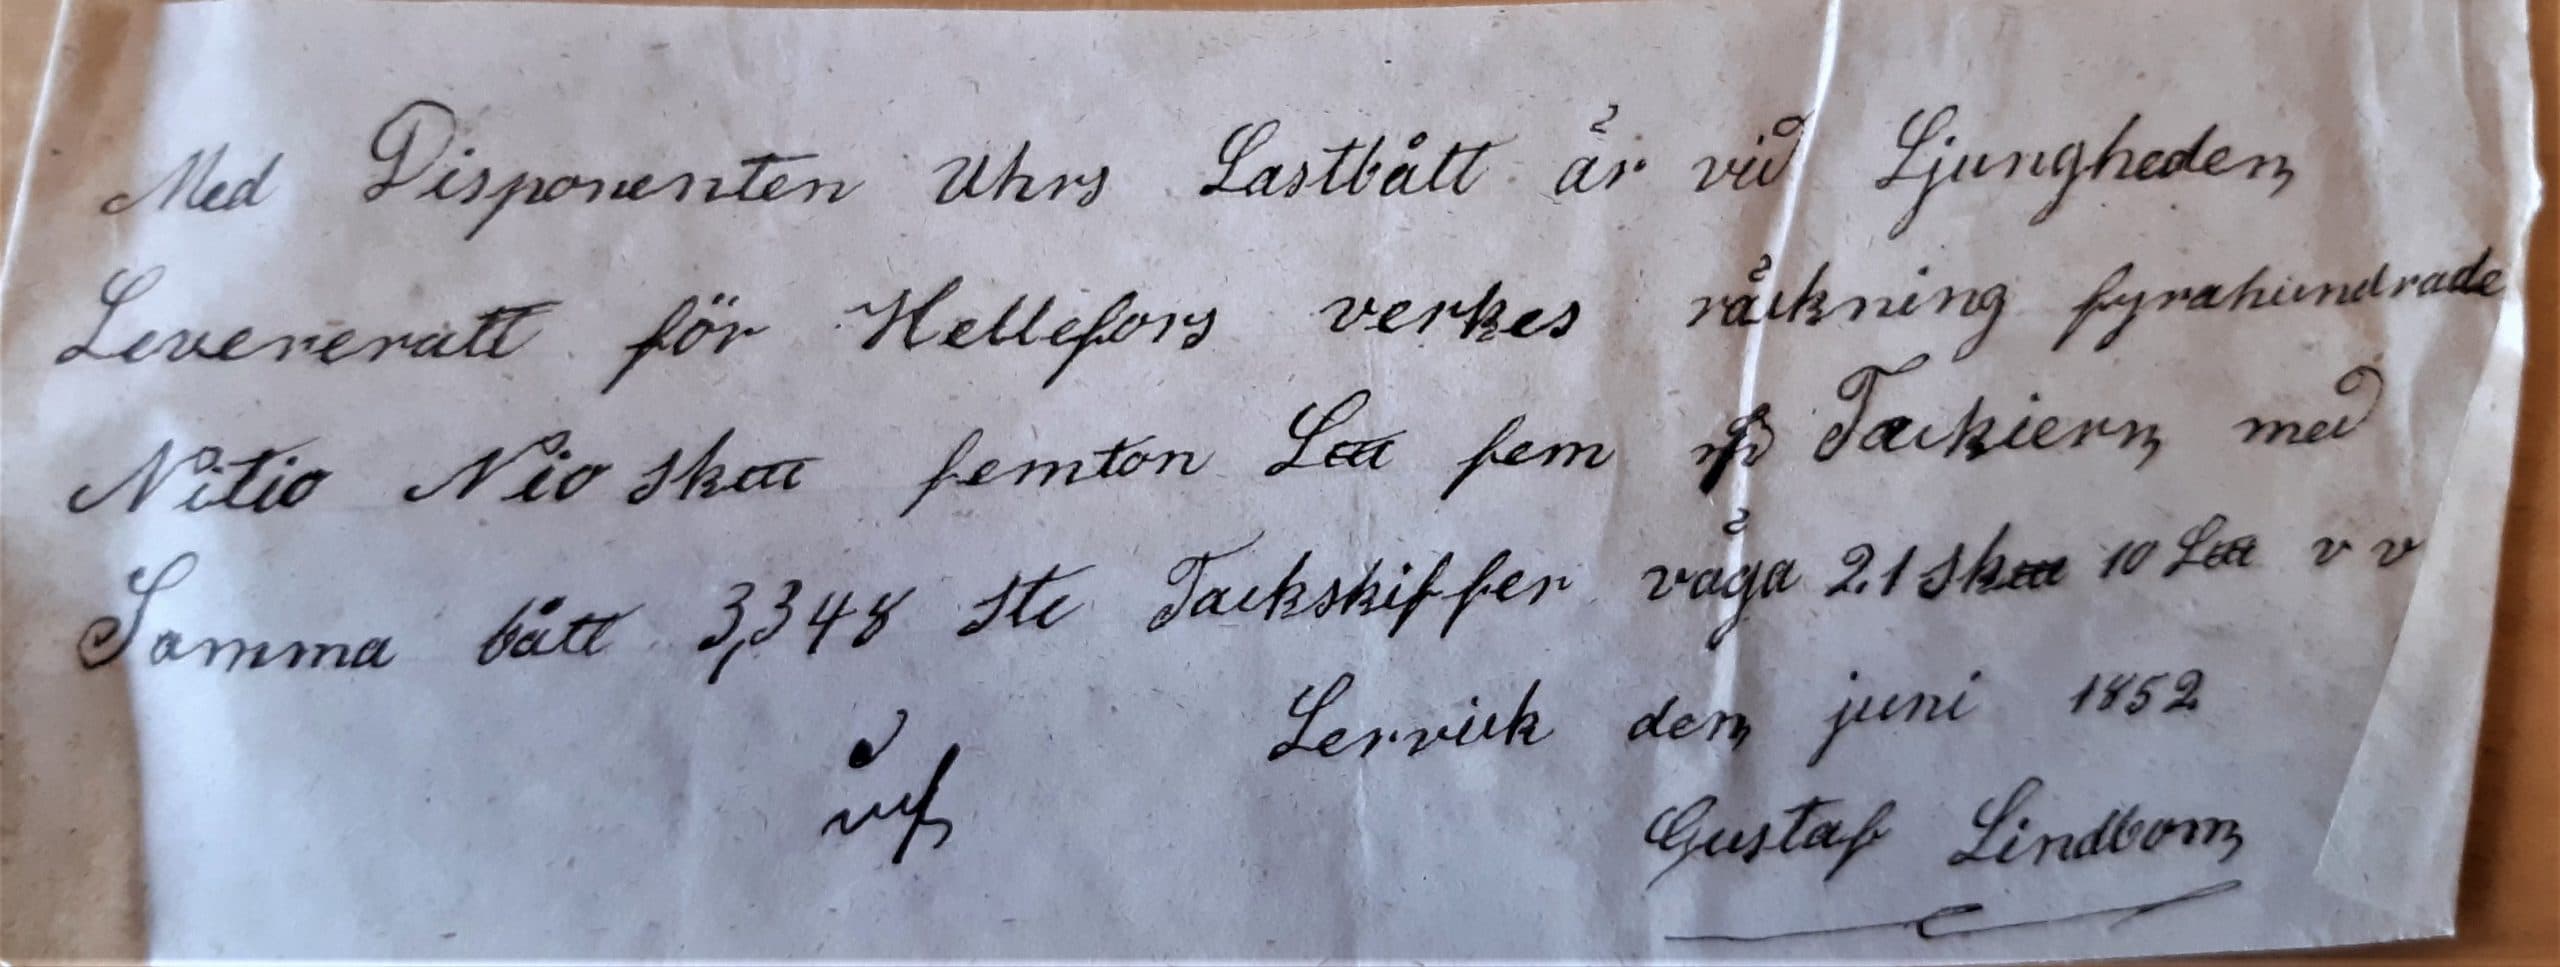 Med Disponenten Uhrs Lastbått är vid Ljungheden
Levereratt för Hellefors verkes räckning fyrahundrade
Nitio Nio Sk℔ femton L℔ fem ℔ Tackiern med
Samma bått 3,348 ste Tackskiffer våga 21 Sk℔ 10 L℔ v v
Lervick den juni 1852
Gustaf Lindbom